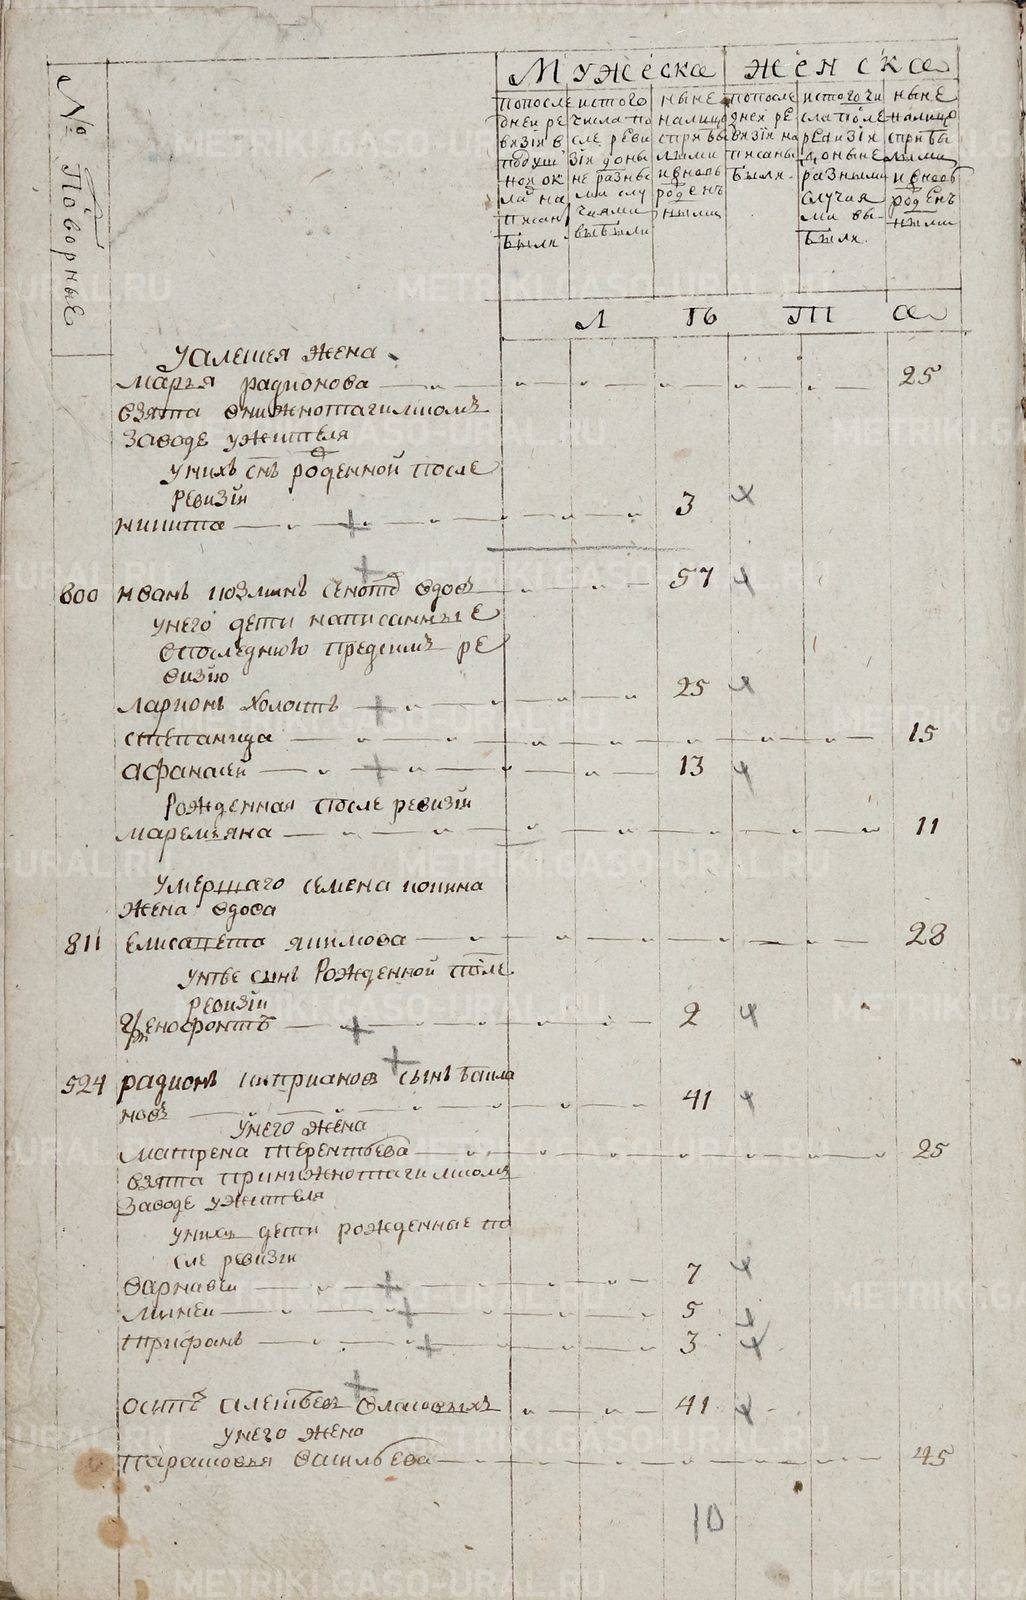 Мужеска женска
№ Поворные
попосле
дней ре
визіи в
подуш
ной ок
ла на
писан
были
истого
числа по
сле реви
зіи доны
не разны
ми слу
чаями
выбыли
ныне
налицо
спрібы
лыми
ивновь
роденъ
ными
попосле
дней ре
визіи на
писаны
были
истого чи
сла после
ревизіи
доныне
разными
случая
ми вы
были
ныне
налицо
спрібы
лыми
ивновь
роденъ
ными
Л Ѣ Т а
Уалешея жена
марья радионова 25
взята внижнотагилском
заводе ужителя
унихъ снъ роденной после
ревизіи
никита 3
800 иванъ козминъ вдовъ 57
унего дети написанные
впоследнюю пред ре
визію
ларионъ холостъ 25
степанида 15
афанасей 13
Рожденная после ревизіи
маремьяна 11
умершаго семена копина
жена вдова
811 елисавета якимова 28
унее сынъ Рожденной после
ревизіи
ксенофонтъ 2
524 радионъ киприановъ сынъ бакла
новъ 41
унего жена
матрена терентьева 25
взята принижнотагилском
заводе ужителя
унихъ дети рожденные по
сле ревизіи
варнавей 7
миней 5
трифанъ 3
осипъ алексеевъ власовыхъ 41
унего жена
парасковья васильева 45
10
METRIKI.GASO-URAL.RU